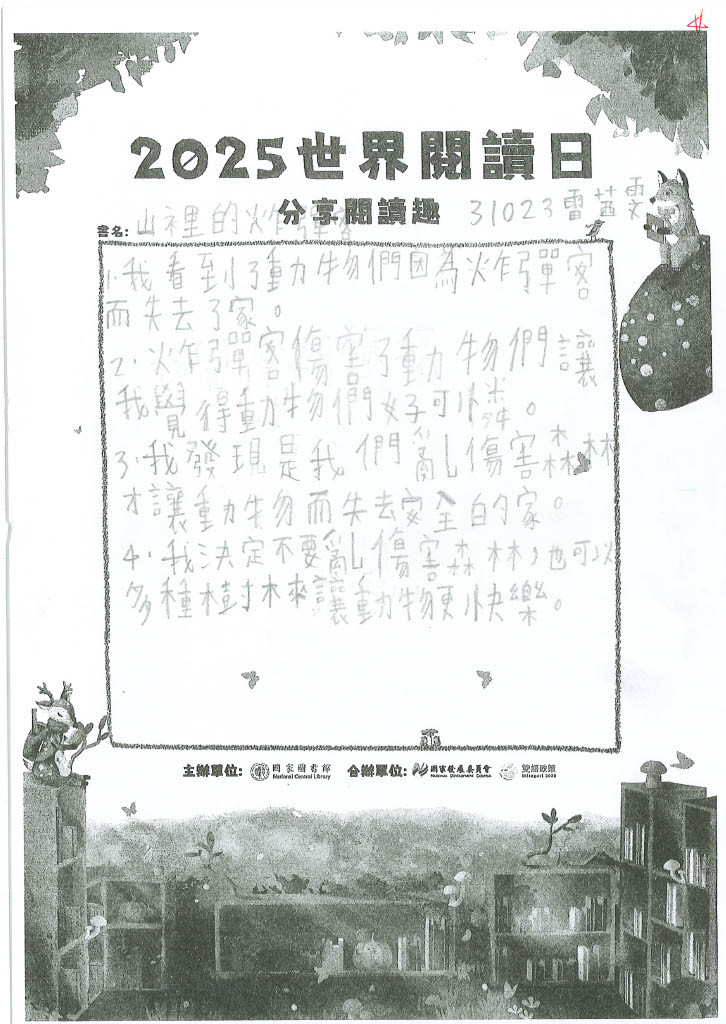 2025世界閱讀日
分享閱讀趣
31023 雷茜雯
書名: 山裡的炸彈客
1.我看到了動物們因為炸彈客
而失去了家。
2.炸彈客傷害了動物們讓
我覺得動物們好可憐。
3.我發現是我們亂傷害森林
才讓動物而失去安全的家。
4.我決定不要亂傷害森林,也可以
多種樹木來讓動物更快樂。
主辦單位: 國家圖書館 National Central Library 合辦單位: 國家發展委員會 National Development Council 雙語政策 Bilingual 2030